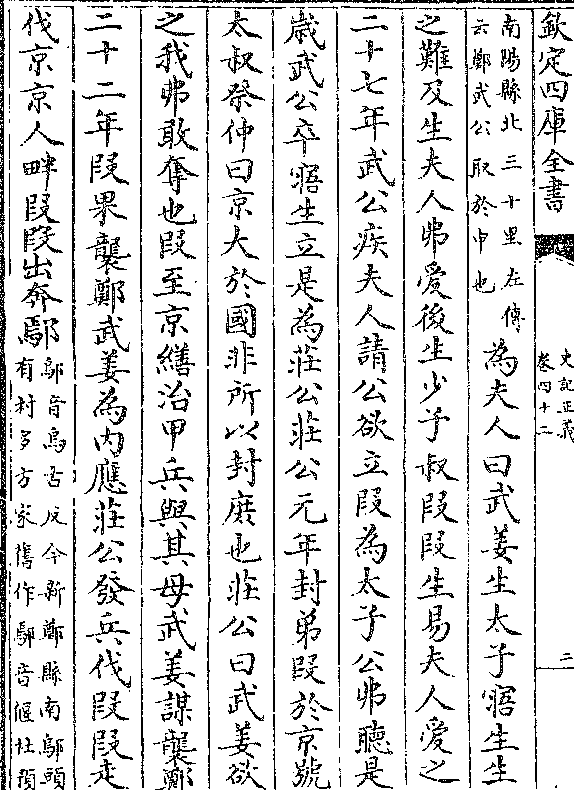 欽定四庫全書
史記正義
卷四十二
二
南陽縣北三十里左傳
云鄭武公取於申也
為夫人曰武姜生太子寤生生
之難及生夫人弗愛後生少子叔段段生易夫人愛之
二十七年武公疾夫人請公欲立段為太子公弗聽是
歲武公卒寤生立是為莊公莊公元年封弟段於京號
太叔祭仲曰京大於國非所以封庶也莊公曰武姜欲
之我弗敢奪也段至京繕治甲兵與其母武姜謀襲鄭
二十二年段果襲鄭武姜為内應莊公發兵伐段段走
伐京京人畔段段出奔鄢
鄔音烏古反今新鄭縣南鄔頭
有村多方家舊作鄢音偃杜預